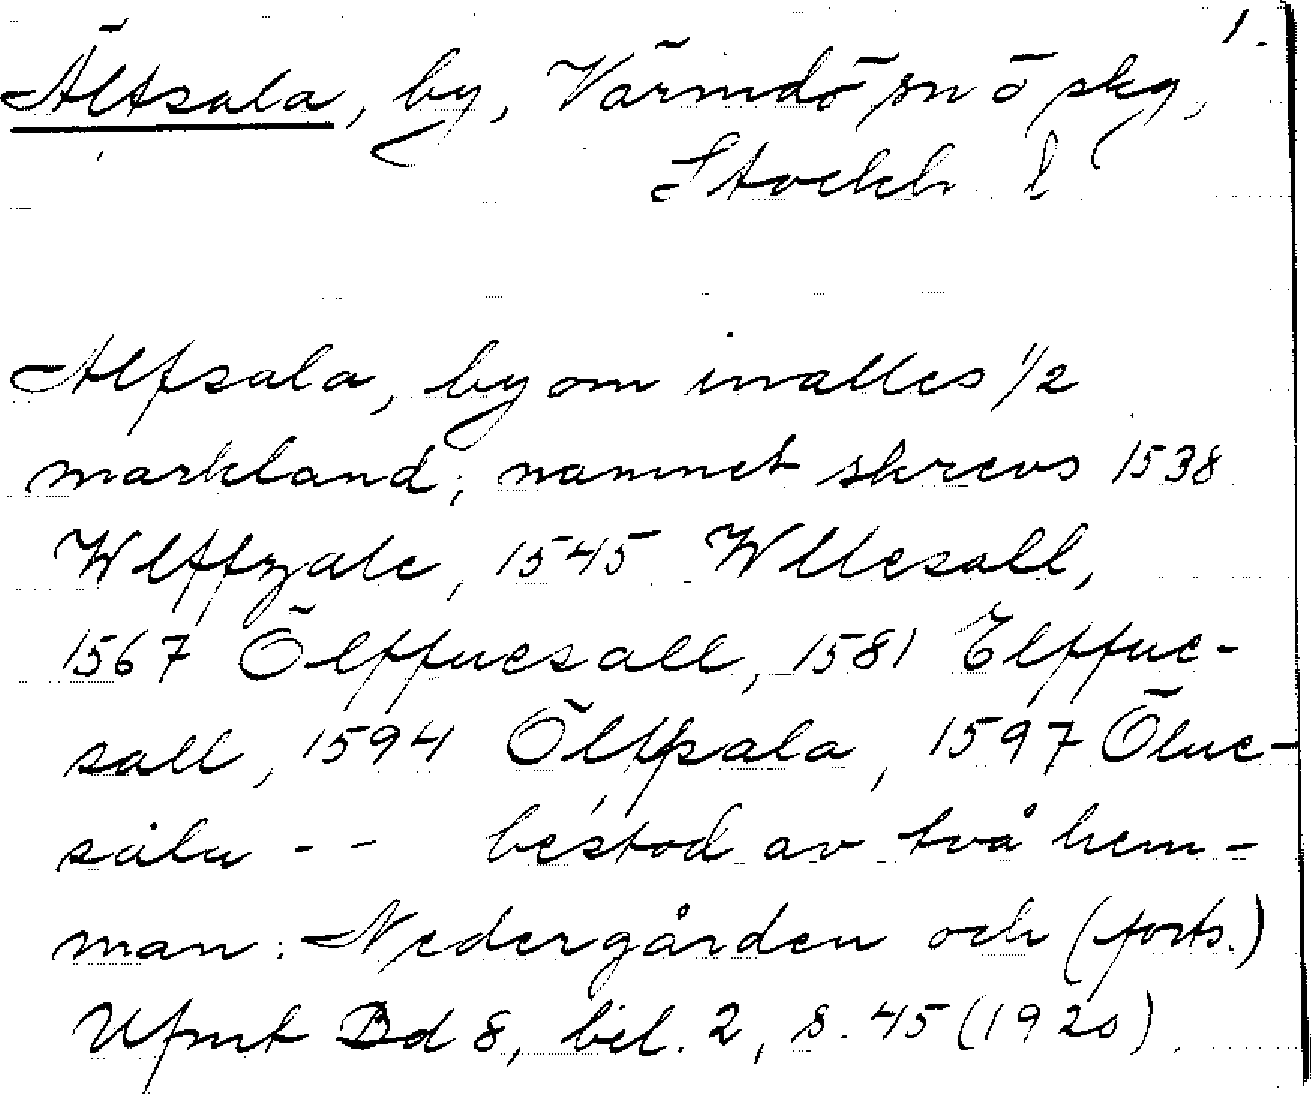 1.
Ältsala, by, Värmdö sn o skg,
Stockh l
Alfsala, by om inalles 1/2
markland; namnet skrevs 1538
Wlffzale, 1545 Wllesall,
1567 Ölffuesall, 1581 Elffue-
sall, 1594 Ölffsala, 1597 Ölue-
salu - - bestod av två hem-
man: Nedergården och (forts.)
Ufmt Bd 8, bil. 2, s. 45 (1920)